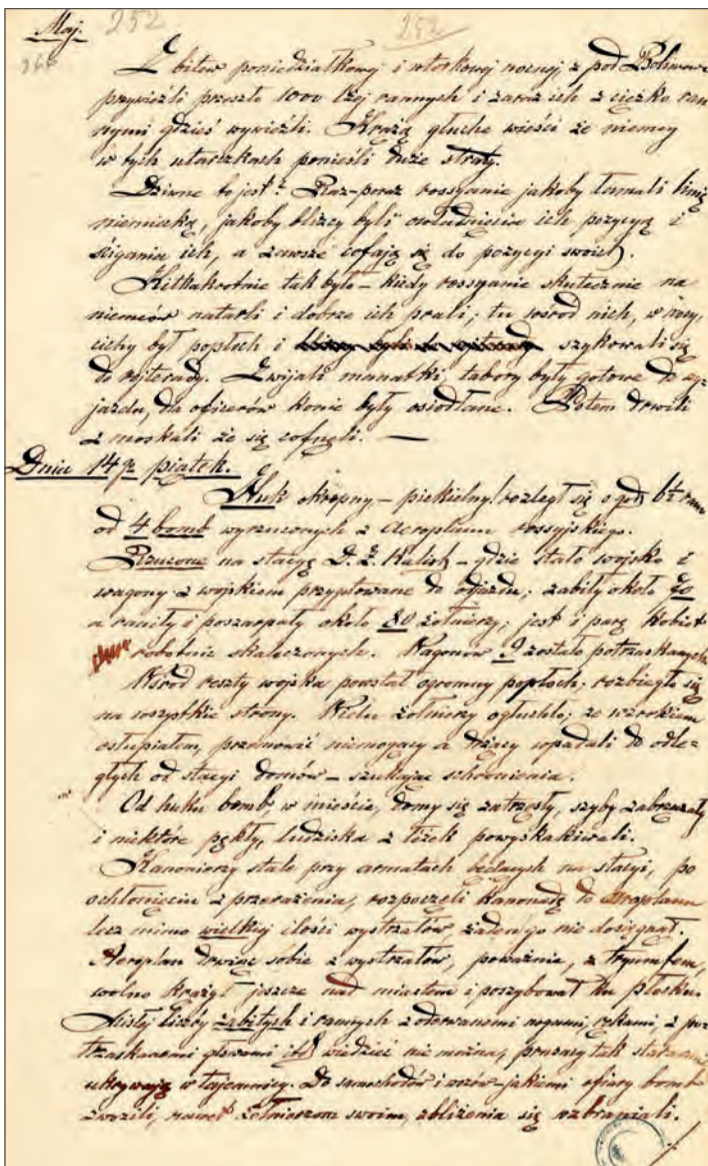 Maj. 252 252
Z bitew poniedziałkowej i wtorkowej nocnej z pod Bolimowa
przywieźli przeszło 1000 lżej rannych i zaraz ich z ciężko ran
nymi gdzieś wywieźli. Krążą głuche wieści że niemcy
w tych utarczkach ponieśli duże straty.
Dziwne to jest? Raz-poraz rossyanie jakoby łamali linię
niemiecką, jakoby blizcy byli osiągnięcia ich pozycyj i
ścigania ich, a zawsze cofają się do pozycyi swoich.
Kilkakrotnie tak było – kiedy rossyanie skutecznie na
niemców natarli i dobrze ich prali; tu wśród nich, w nocy,
cichy był popłoch i szykowali się
do rejterady. Zwijali manatki, tabory były gotowe do wy-
jazdu, dla oficerów konie były osiodłane. Potem drwili
z moskali że się cofnęli. —
Dnia 14go piątek.
Huk okropny – piekielny! rozległ się o godz 6½ rano
od 4 bomb wyrzuconych z aeroplanu rossyjskiego.
Rzucone na stacyę D. Ż. Kalisk – gdzie stało wojsko i
wagony z wojskiem przyptowane do odjazdu; zabiły około 70
a raniły i poszarpały około 80 żołnierzy; jest i parę kobiet
robotnic skaleczonych. Wagonów 9 zostało potrzaskanych
Wśród reszty wojska powstał ogromny popłoch; rozbiegło się
na wszystkie strony. Wielu żołnierzy ogłuchło; ze wzrokiem
osłupiałem, przemówić niemogący a drżący wpadali do odle-
głych od stacyi domów – szukając schronienia.
Od huku bomb, w mieście, domy się zatrzęsły, szyby zabrzęczały
i niektóre pękły, ludziska z łóżek powyskakiwali.
Kanonierzy stale przy armatach będących na stacyi, po
ochłonięciu z przerażenia, rozpoczęli kanonadę do aeroplanu
lecz mimo wielkiej ilości wystrzałów żaden go nie dosięgnął.
Aeroplan drwiąc sobie z wystrzałów, poważnie, z tryumfem,
wolno krążył jeszcze nad miastem i poszybował ku płocku.
Ścisłej liczby zabitych i rannych z oderwanemi nogami, rękami, z po
trzaskanemi głowami itd wiedzieć nie można, prusacy tak starannie
ukrywają w tajemnicy. Do samochodów i wozów – jakiemi ofiary bomb
zwozili, nawet żołnierzom swoim, zbliżenia się wzbraniali.